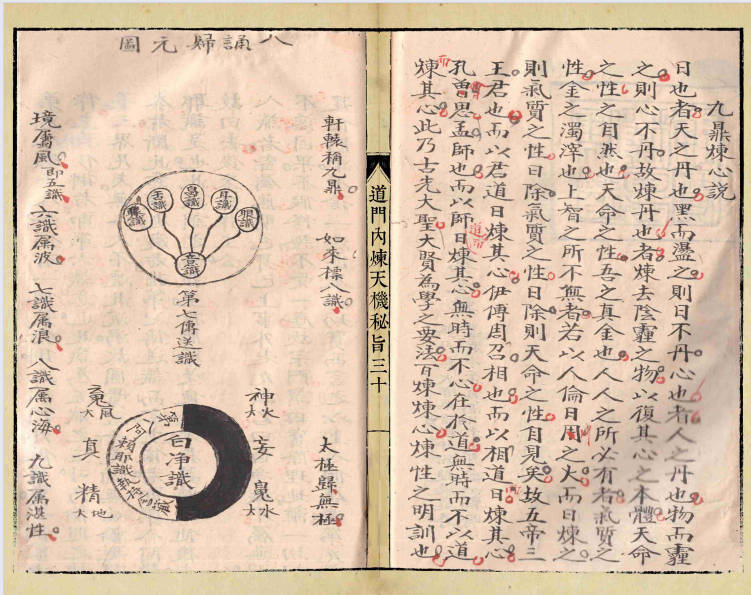 九鼎煉心說
日也者天之丹也黑而盪之則日不丹心也者人之丹也物而霾
之則心不丹故煉丹也者煉去陰霾之物以復其心之本體天命
之性之自然也天命之性吾之真金也人人之所必有者氣質之
性金之濁滓也上智之所不無者若以人倫日用之火而日煉之
則氣質之性日除氣質之性日除則天命之性自見矣故五帝三
王君也而以君道日煉其心伊傅周召相也而以相道日煉其心
孔曾思孟師也而以師日煉其心無時而不心在於道無時而不以道
道而
而
煉其心此乃古先大聖大賢為學之要法百煉煉心煉性之明訓也
道門內煉天機秘旨三十
八識歸元圖
軒轅稱九鼎 如來標八識 太極歸無極
眼識
耳識
鼻識
舌識
意識
第七傳送識
神火
妄
真
精地
白淨識
境屬風即五識 六識屬波 七識屬浪 八識屬心海 九識屬湛性